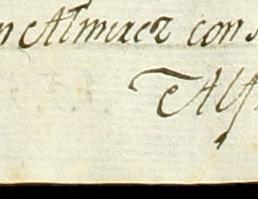 n Almirez con s
Alf